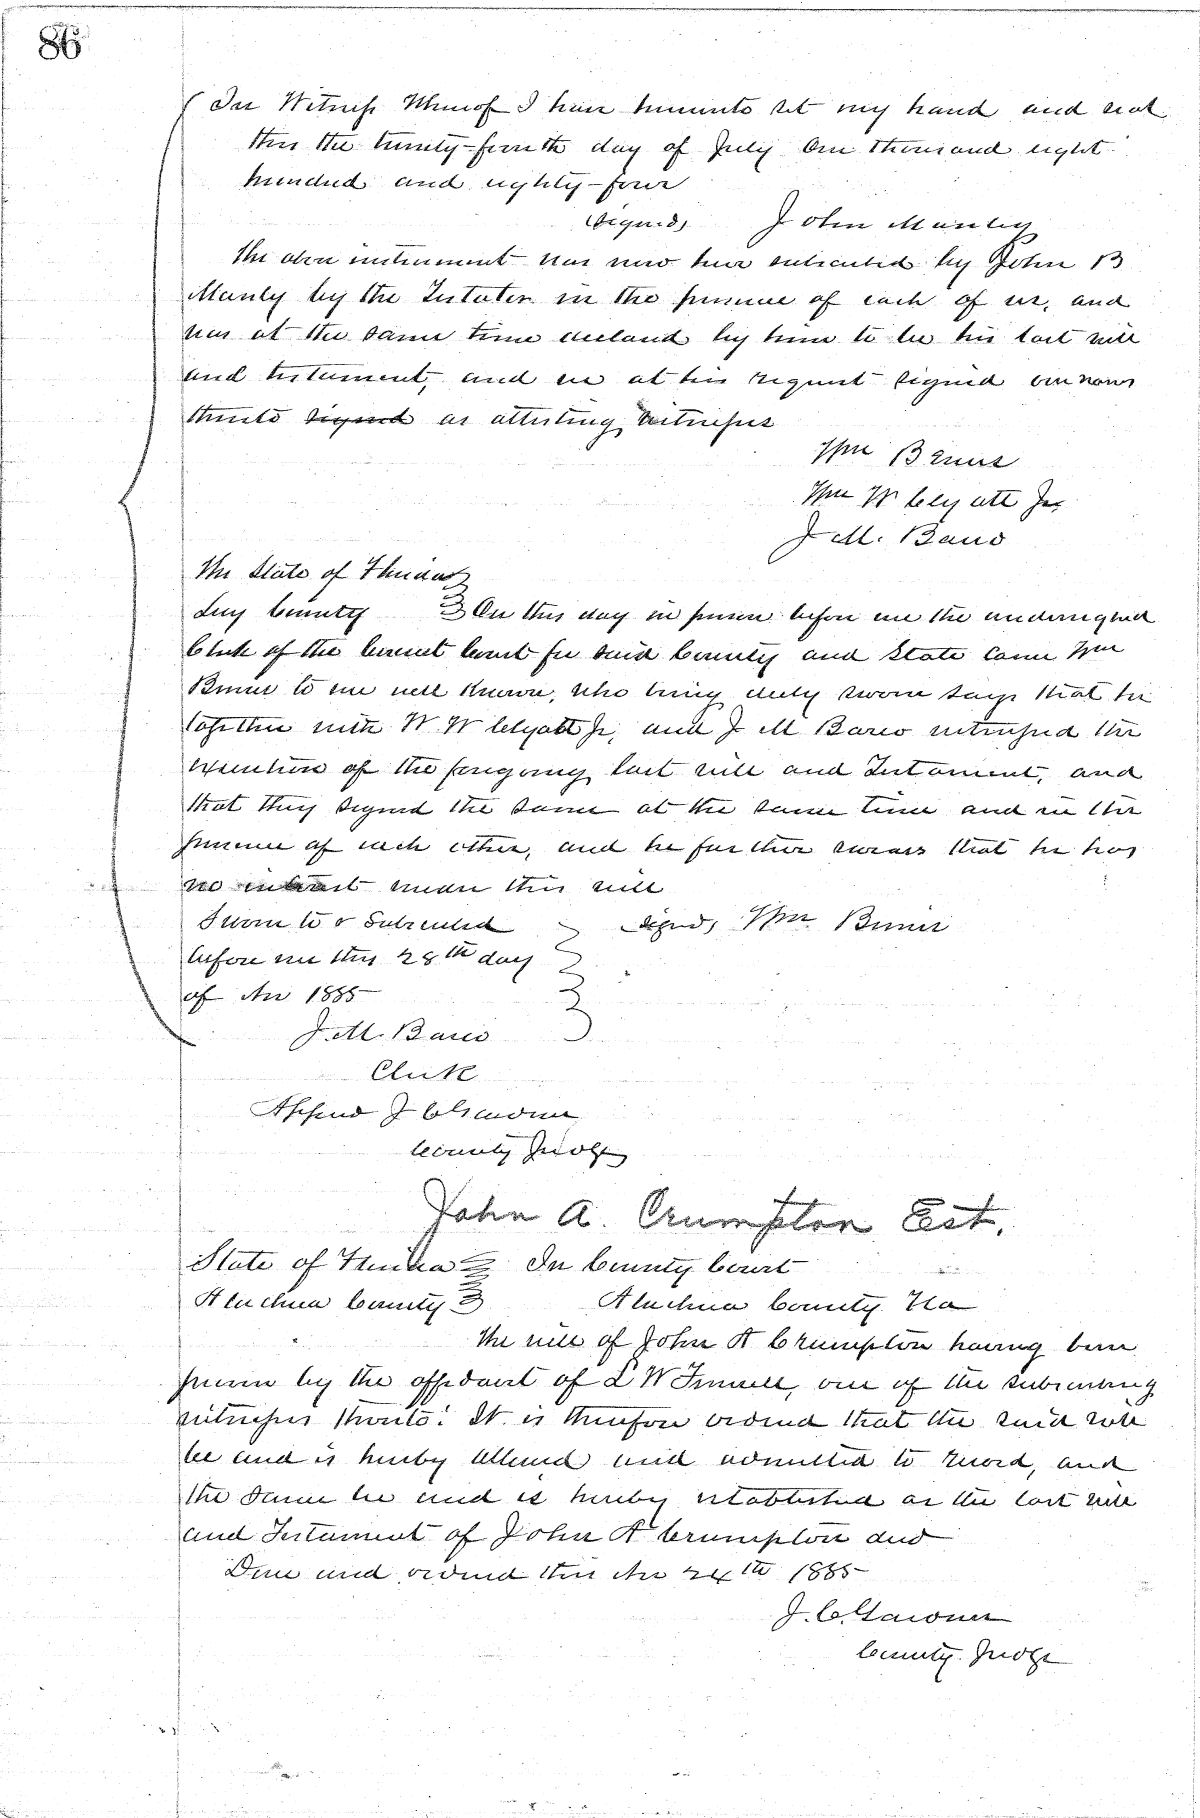 86
In Witness Whereof I have hereunto set my hand and seal
this the twenty-fourth day of July One thousand eight
hundred and eighty-four
(Signed) John Manley
The above instrument was now here subscribed by John B
Manly by the Testator in the presence of each of us, and
was at the same time declared by him to be his last will
and testament, and we at his request signed our names
thereto signed as attesting witnesses
Wm
Wm W Clyatt Jr
J. M.
The State of Florida
Levy County On this day in person before me the undersigned
Clerk of the Circuit Court for said County and State came Wm
to me well known, who being duly sworn says that he
together with W W Clyatt Jr, and J M witnessed the
execution of the foregoing last will and Testament, and
that they signed the same at the same time and in the
presence of each other, and he further swears that he has
no interest under this will
Sworn to & Subscribed signed, Wm
before me this 28th day
of 1885
J. M.
Clerk
J C Gardner
County Judge
John A. Crumpton Est.
State of Florida In County Court
Alachua County Alachua County Fla
The will of John A Crumpton having been
proven by the affidavit of L W one of the subscribing
witnesses thereto. It is therefore ordered that the said will
be and is hereby allowed and admitted to record, and
the same be and is hereby established as the last will
and Testament of John A Crumpton decd
Done and ordered this 24th 1885
J. C. Gardner
County Judge